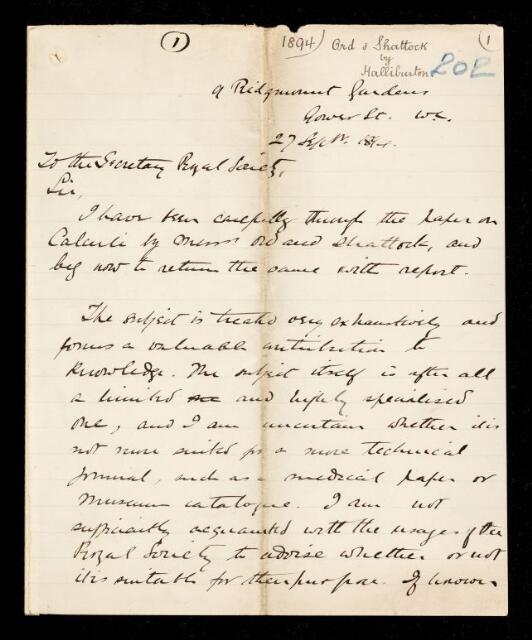 1
1894) Ord & Shattock
by
Halliburton
1
202
9 Ridgmount Gardens
Gower St. W.C.
27 Sept. 1894.
To the Secretary Royal Society,
Sir,
I have been carefully through the paper on
Calculi by Messrs Ord and Shattock, and
beg now to return the same with report.
The subject is treated very exhaustively and
forms a valuable contribution to
knowledge. The subject itself is after all
a limited and highly specialised
one, and I am uncertain whether it is
not more suited for a more technical
journal, such as a medical paper or
museum catalogue. I am not
sufficiently acquainted with the usages of the
Royal Society to advise whether or not
it is suitable for their purpose. If